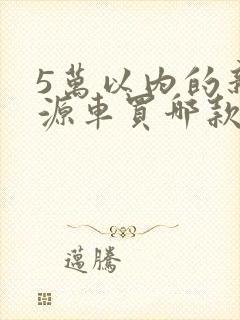 5萬以內的新
源車買哪款
邁騰